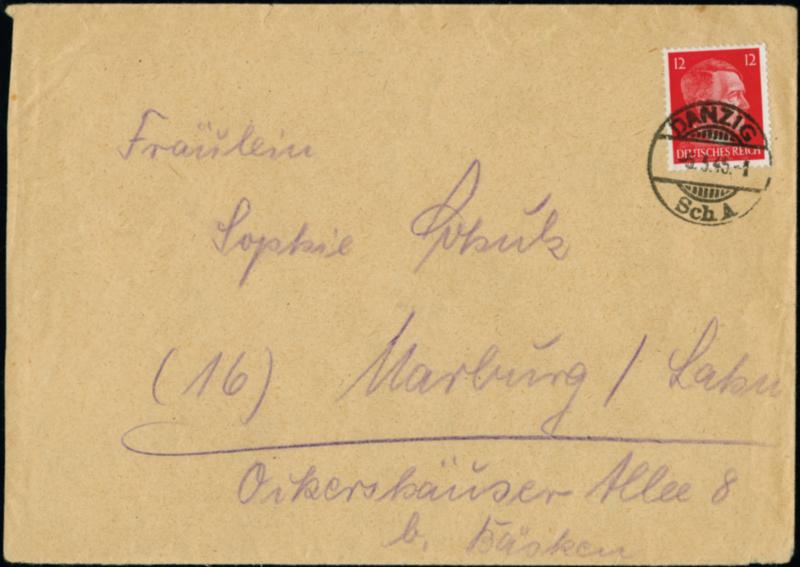 12 12
DEUTSCHES REICH
DANZIG
.45.-1
Sch A
Fräulein
Sophie
(16) Marburg / Lahn
Ockershäuser Allee 8
b. Bäsken